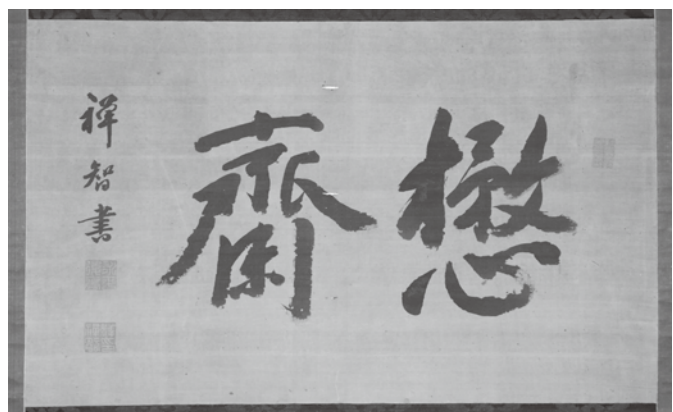 懋齋
禅智書